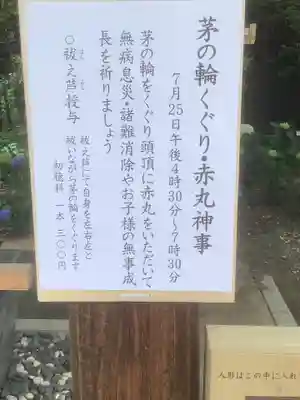 茅の輪くぐり・赤丸神事
7月25日午後4時30分～7時30分
茅の輪をくぐり頭頂に赤丸をいただいて
無病息災・諸難消除やお子様の無事成
長を祈りましょう
○祓え芦授与
はら
あし
祓え芦にて自身を左右左と
祓いながら茅の輪をくぐります
初穂料 一本 三〇〇円
人形はこの中に入れ